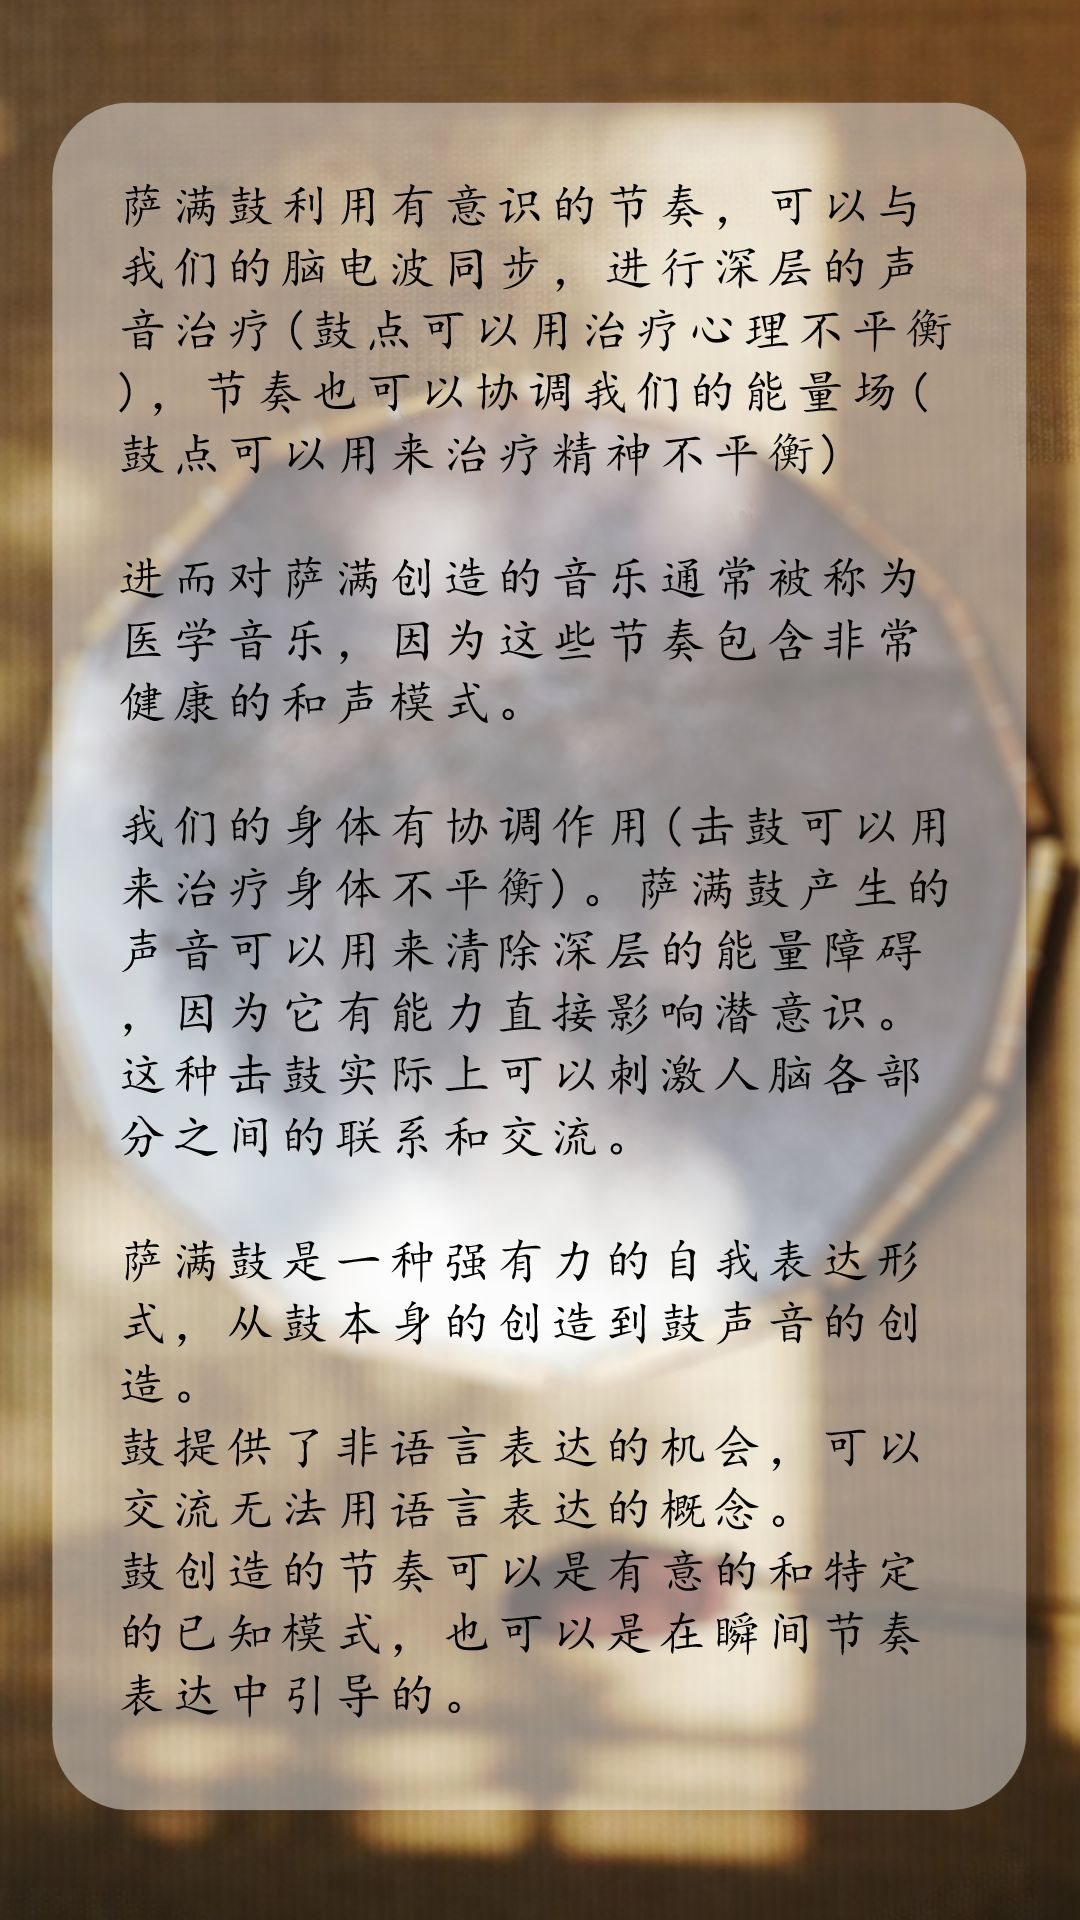 萨满鼓利用有意识的节奏，可以与
我们的脑电波同步，进行深层的声
音治疗(鼓点可以用治疗心理不平衡
)，节奏也可以协调我们的能量场(
鼓点可以用来治疗精神不平衡)
进而对萨满创造的音乐通常被称为
医学音乐，因为这些节奏包含非常
健康的和声模式。
我们的身体有协调作用(击鼓可以用
来治疗身体不平衡)。萨满鼓产生的
声音可以用来清除深层的能量障碍
，因为它有能力直接影响潜意识。
这种击鼓实际上可以刺激人脑各部
分之间的联系和交流。
萨满鼓是一种强有力的自我表达形
式，从鼓本身的创造到鼓声音的创
造。
鼓提供了非语言表达的机会，可以
交流无法用语言表达的概念。
鼓创造的节奏可以是有意的和特定
的已知模式，也可以是在瞬间节奏
表达中引导的。